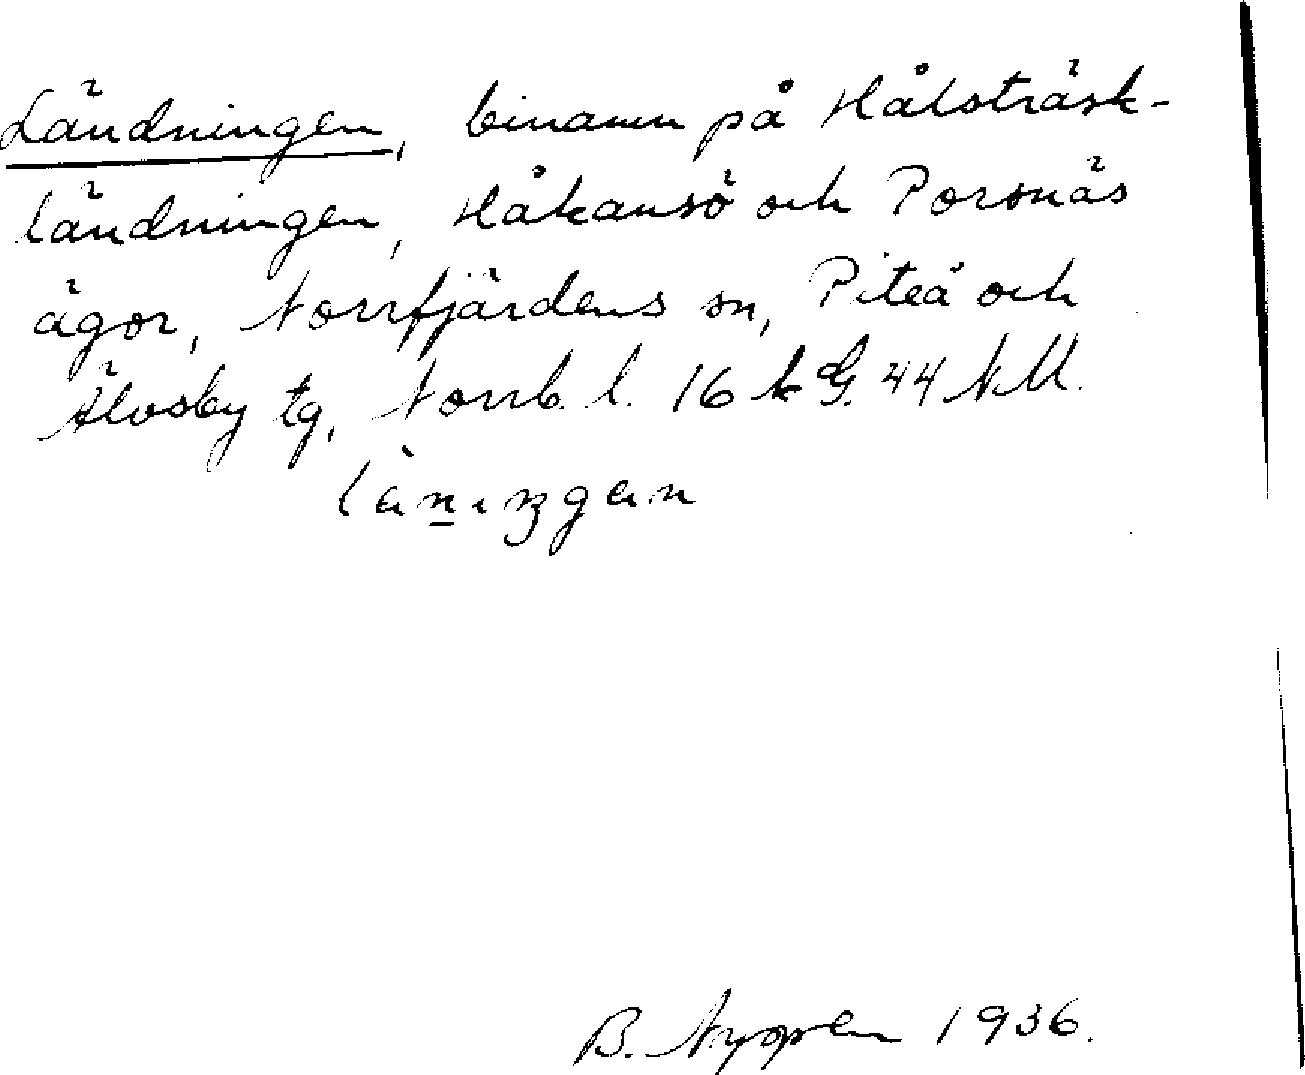 Ländningen, binamn på Hålsträsk-
ländningen, Håkansö och Porsnäs
ägor, Norrfjärdens sn, Piteå och
Älvsby tg, Norrb. l. 16 k G. 44 NM.
läningen
B. 1936.